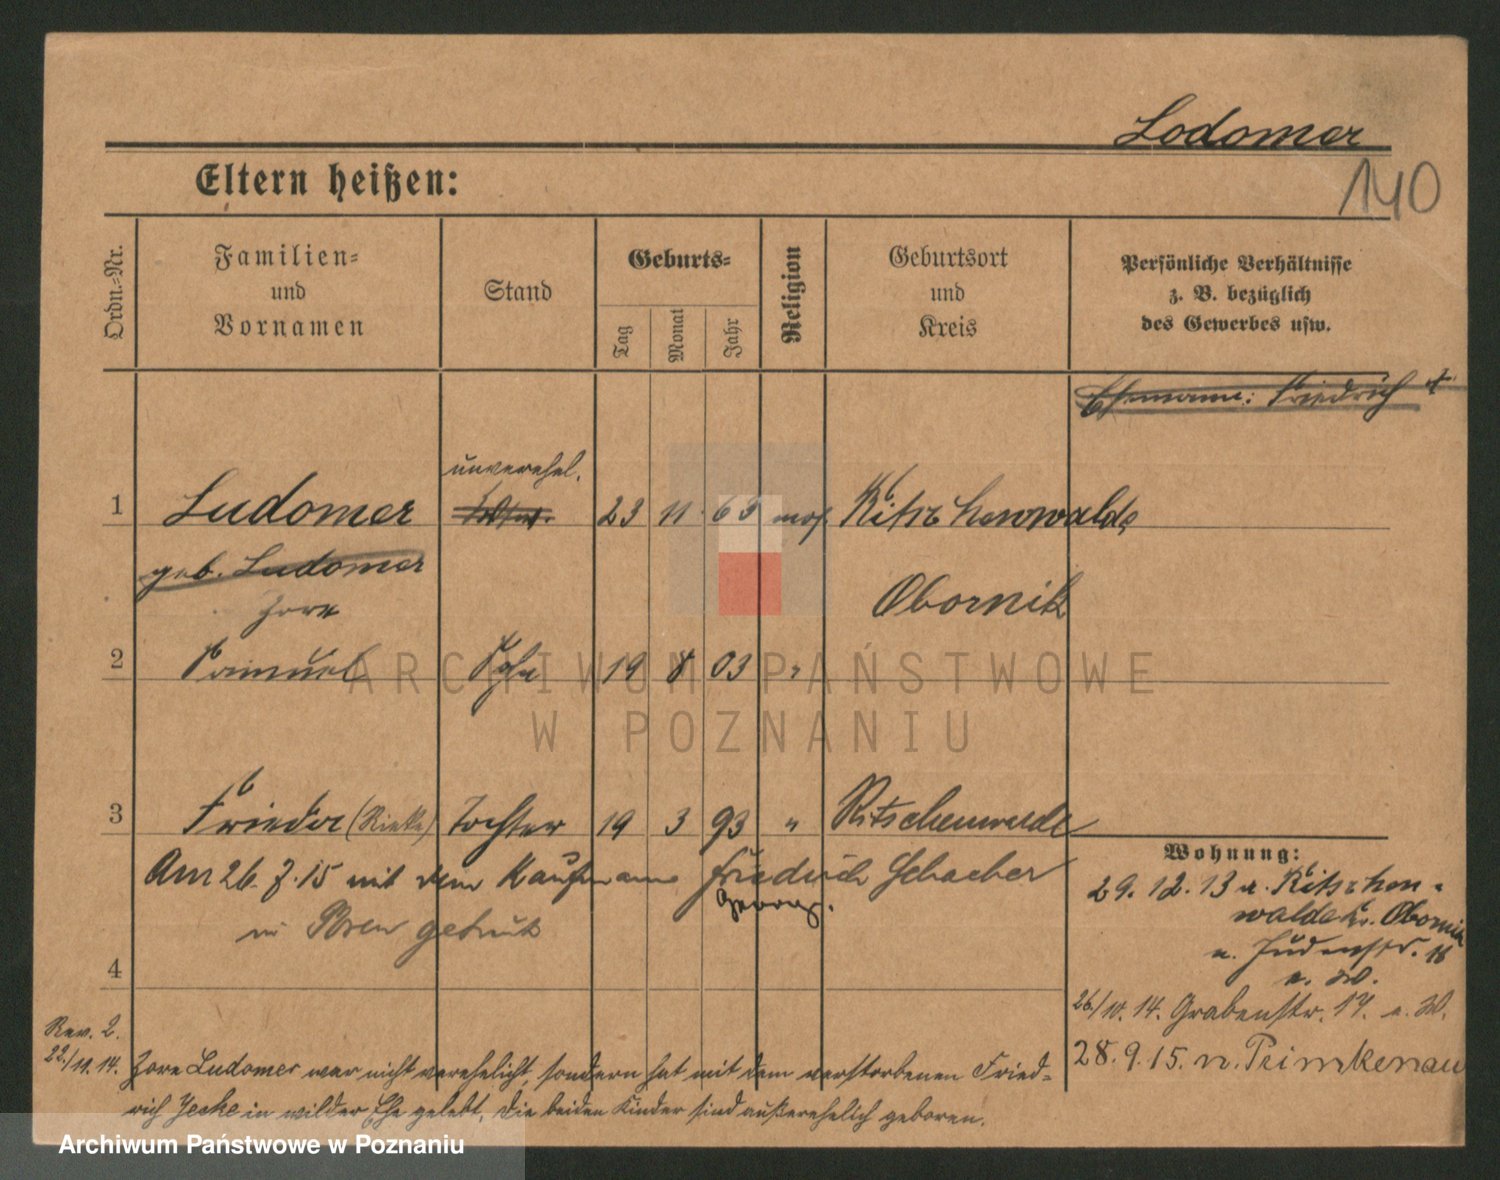 Lodomer
140
Eltern heißen:
Ordn.=Nr.
Familien=
und
Vornamen
Stand
Geburts=
Tag
Monat
Jahr
Religion
Geburtsort
und
Kreis
Persönliche Verhältnisse
z. B. bezüglich
des Gewerbes usw.
Ehemann: Friedrich †
unverehel.
1 Ludomer 23 11 63 mos. Ritschenwalde
geb. Ludomer
Zore Obornik
2 Samuel Sohn 19 8 03 "
3 Frieder (Rieke) Tochter 19 3 93 " Ritschenwalde
Am 26. 7. 15 mit dem Kaufmann Friedrich Schacher
Georg.
in Posen getraut
4
Wohnung:
29. 12. 13 a. Ritschen=
walde Kr. Obornik
n. Judenstr. 18
e. W.
26./10. 14. Grabenstr. 17. e. W.
28. 9. 15. n. Primkenau
Rev. 2.
22./11. 14. Zore Ludomer war nicht verehelicht, sondern hat mit dem verstorbenen Fried=
rich Jecke in wilder Ehe gelebt, die beiden Kinder sind außerehelich geboren.
ARCHIWUM PAŃSTWOWE
W POZNANIU
Archiwum Państwowe w Poznaniu